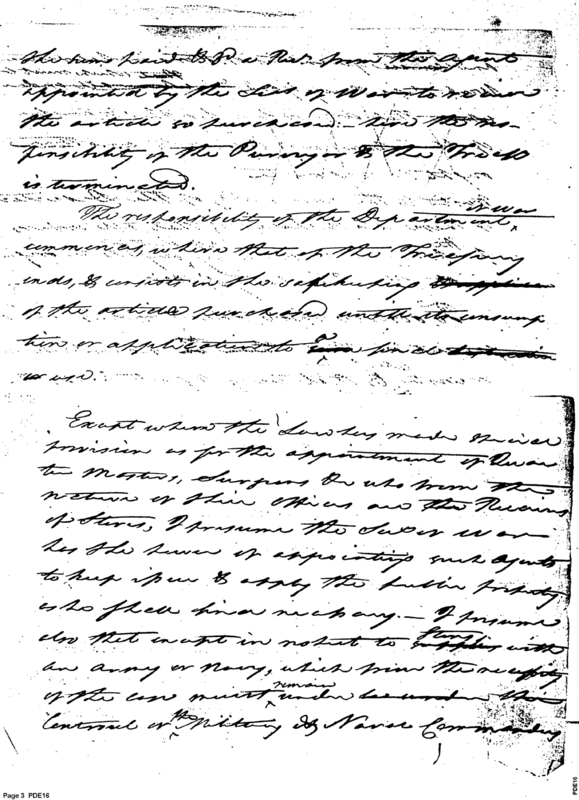 the same paid & a Rect. from the Agent
appointed by the Secy of War to receive
the article so purchased – here the res-
ponsibility of the Purveyor & the Treasy
is terminated.
The responsibility of the Department of War
commences, where that of the Treasury
ends, & consists in the safekeeping
of the article purchased until its consump
tion or application to a
or use.
Except where the Law has made special
provision as for the appointment of Quar
ter Masters, Surgeons &c who from the
nature of their offices are the Receivers
of Stores, I presume the Secy of War
has the power of appointing such Agents
to keep issue & apply the public property
as he shall find necessary. – I presume
also that except in respect to Stores with
an Army or Navy, which from the necessity
of the case must remain under the
Controul of the Military & Naval Commanders
Page 3 PDE16
PDE16